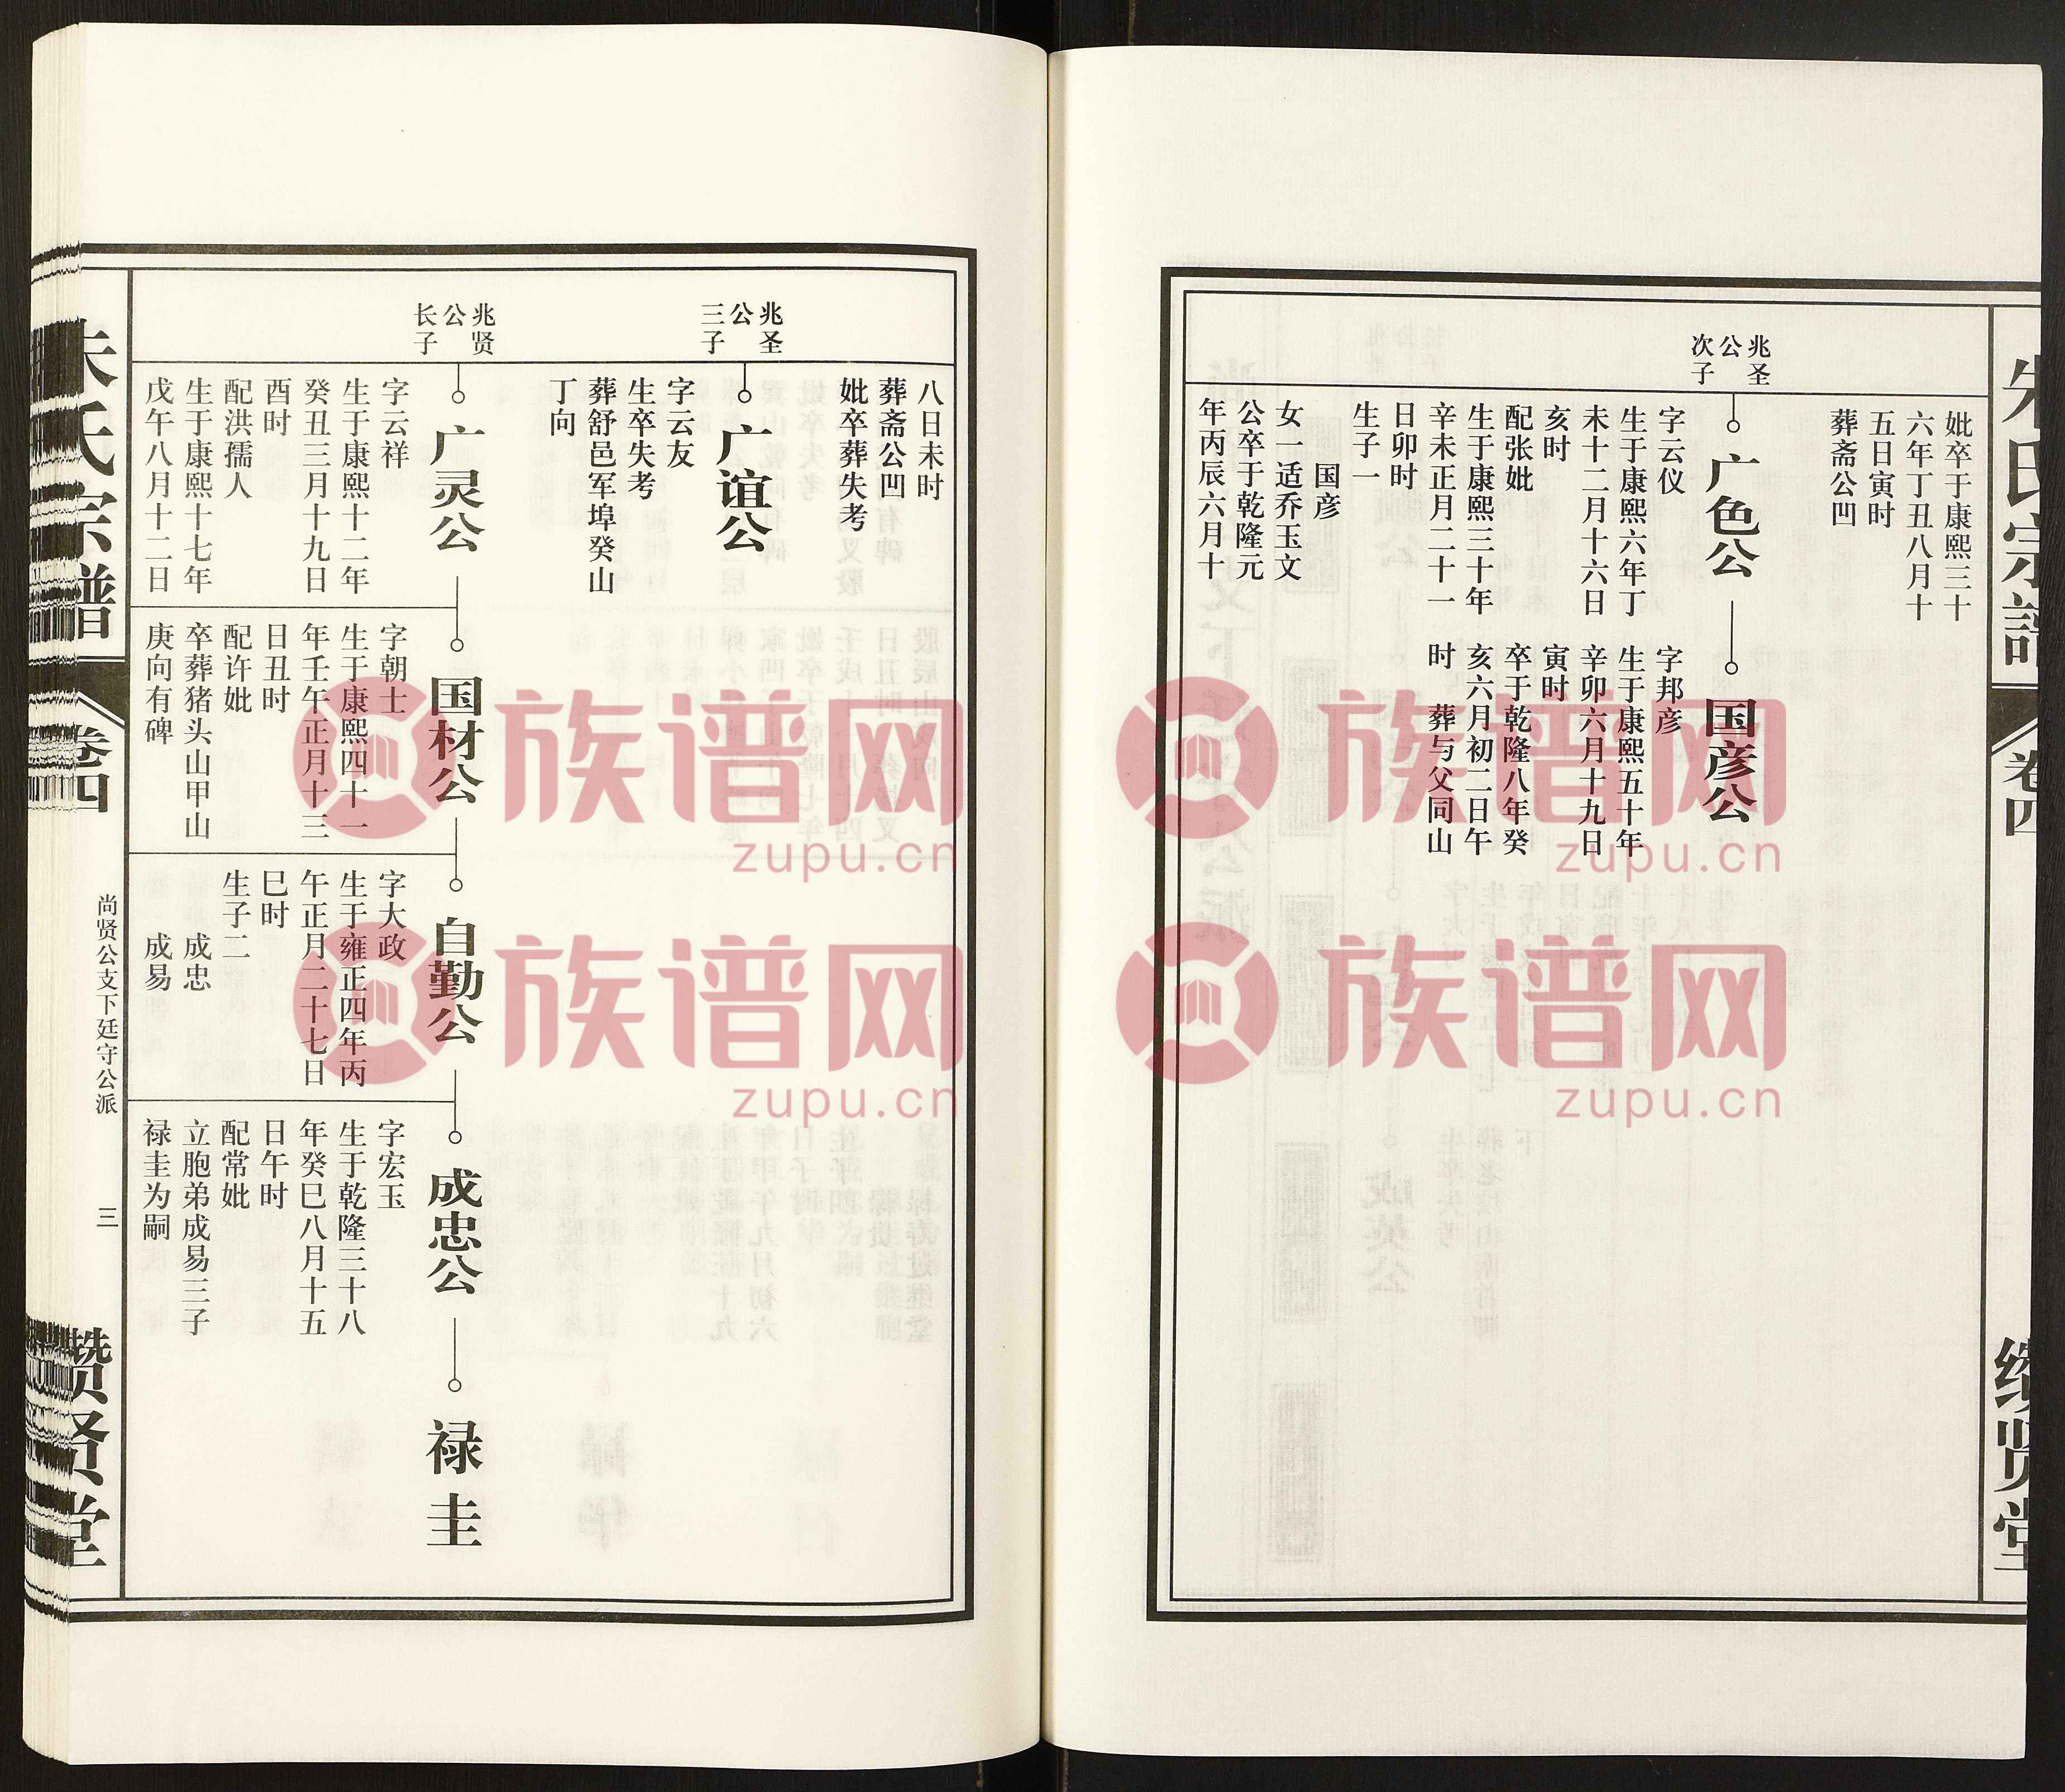 朱氏宗谱
卷四
缵贤堂
妣卒于康熙三十
六年丁丑八月十
五日寅时
葬斋公凹
兆圣
公
次子
广色公
字云仪
生于康熙六年丁
未十二月十六日
亥时
配张妣
生于康熙三十年
辛未正月二十一
日卯时
生子一
国彦
女一适乔玉文
公卒于乾隆元
年丙辰六月十
国彦公
字邦彦
生于康熙五十年
辛卯六月十九日
寅时
卒于乾隆八年癸
亥六月初二日午
时 葬与父同山
八日未时
葬斋公凹
妣卒葬失考
兆圣
公
三子
广谊公
字云友
生卒失考
葬舒邑军埠癸山
丁向
兆贤
公
长子
广灵公
字云祥
生于康熙十二年
癸丑三月十九日
酉时
配洪孺人
生于康熙十七年
戊午八月十二日
国材公
字朝士
生于康熙四十一
年壬午正月十三
日丑时
配许妣
卒葬猪头山甲山
庚向有碑
自勤公
字大政
生于雍正四年丙
午正月二十七日
巳时
生子二
成忠
成易
成忠公
字宏玉
生于乾隆三十八
年癸巳八月十五
日午时
配常妣
立胞弟成易三子
禄圭为嗣
禄圭
朱氏宗谱
卷四
尚贤公支下廷守公派
三
缵贤堂
族谱网
zupu.cn
族谱网
zupu.cn
族谱网
zupu.cn
族谱网
zupu.cn